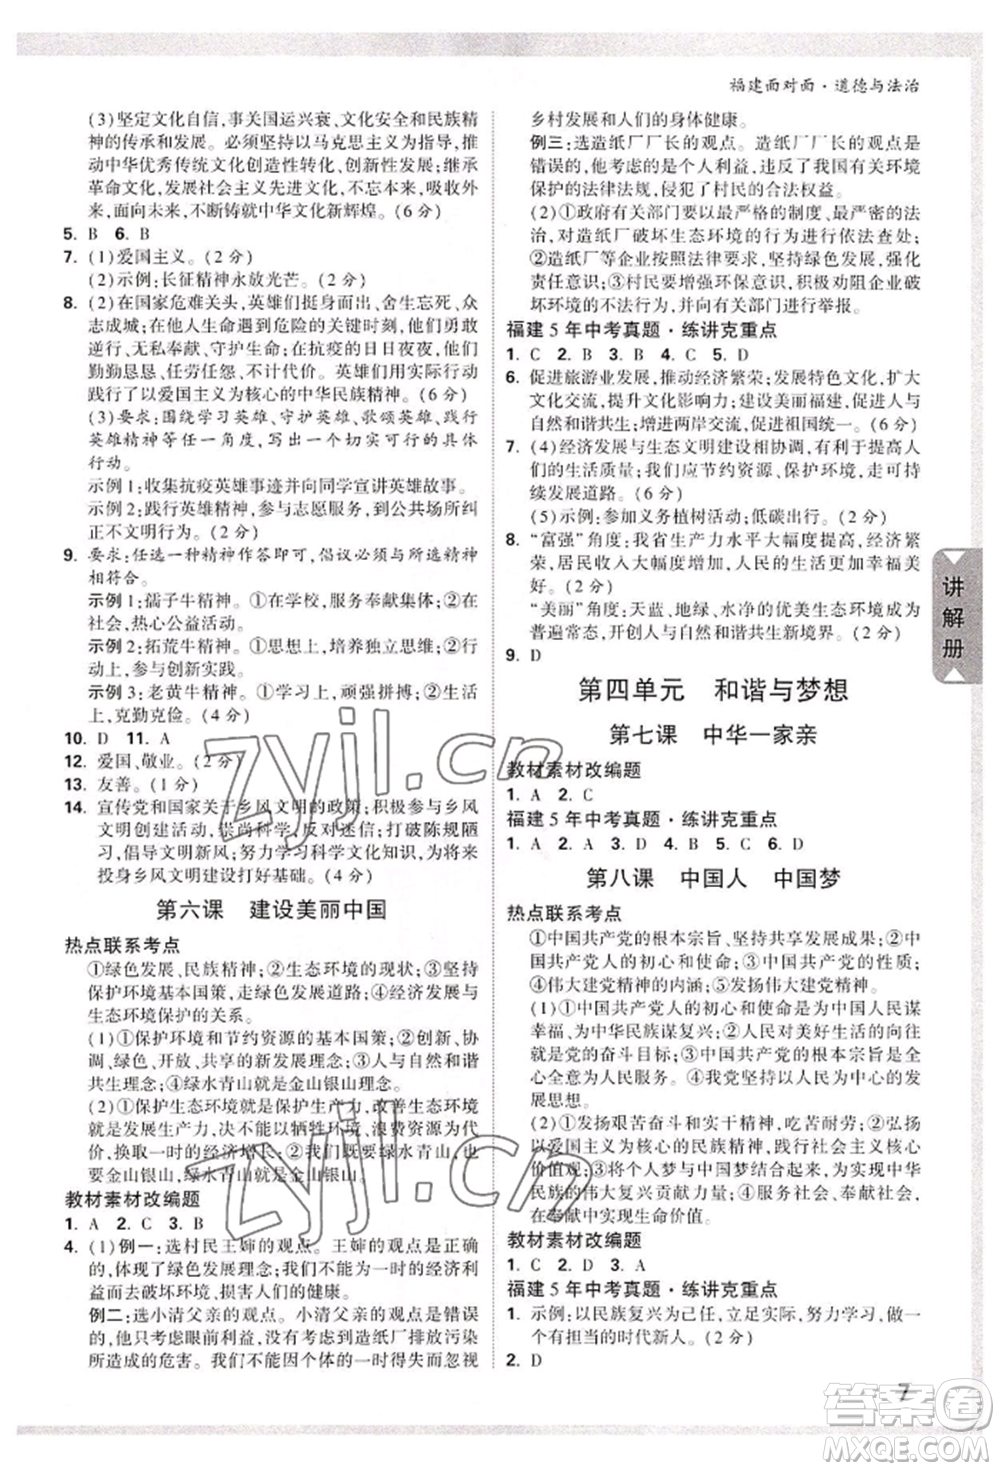 福建面对面·道德与法治
(3)坚定文化自信,事关国运兴衰、文化安全和民族精
神的传承和发展。必须坚持以马克思主义为指导,
推动中华优秀传统文化创造性转化、创新性发展;继承
革命文化,发展社会主义先进文化,不忘本来、吸收外
来、面向未来,不断铸就中华文化新辉煌。(6分)
5. B 6. B
7. (1)爱国主义。(2分)
(2)示例:长征精神永放光芒。(2分)
8. (2)在国家危难关头,英雄们挺身而出、舍生忘死、众
志成城;在他人生命遇到危险的关键时刻,他们勇敢
奔赴、无私奉献、守护生命;在抗疫的日日夜夜,他们
勤勤恳恳、任劳任怨、不计代价。英雄们用实际行动
践行了以爱国主义为核心的中华民族精神。(4分)
(3)要求:围绕学习英雄、守护英雄、歌颂英雄、践行
英雄精神等任一角度,写出一个切实可行的具体
行动。
示例1:收集抗疫英雄事迹并向同学宣讲英雄故事。
示例2:践行英雄精神,参与志愿服务。(劝阻、纠
正不文明行为。)(2分)
9. 要求:任选一种精神作答即可,倡议必须与所选精神
相符合。
示例1:孺子牛精神。①在学校,服务奉献集体;②在
社会,热心公益活动。
示例2:拓荒牛精神。①思想上,培养创新思维;②行
动上,参与创新实践。
示例3:老黄牛精神。①学习上,顽强拼搏;②生活
上,克勤克俭。(4分)
10. D 11. A
12. 爱国、敬业。(2分)
13. 友善。(2分)
14. 宣传党和国家关于乡风文明的政策;积极参与乡风
文明创建活动,崇尚科学、反对迷信;打破陈规陋
习,倡导文明新风;努力学习科学文化知识,为将来
投身乡风文明建设打好基础。(4分)
第六课 建设美丽中国
热点联系考点
①绿色发展、民族精神;②生态环境的现状;③坚持
保护环境基本国策,走绿色发展道路;④经济发展与
生态环境保护的关系。
(1)①保护环境和节约资源的基本国策;②创新、协
调、绿色、开放、共享的新发展理念;③人与自然和谐
共生理念;④绿水青山就是金山银山理念。
(2)①保护生态环境就是保护生产力,改善生态环境就
是发展生产力,不能以牺牲环境、浪费资源为代
价,换取一时的经济增长;②我们既要绿水青山,也
要金山银山,绿水青山就是金山银山。
教材素材改编题
1. A 2. C 3. B
4. (1)例一:选村民王婶的观点。王婶的观点是正确
的,体现了绿色发展理念。我们不能为一时的经济
利益而破坏环境、损害人们的健康。
例二:选小清父亲的观点。小清父亲的观点是错误
的,他只考虑眼前利益,没有看到造纸厂排放污染
所造成的危害。我们不能为一时的经济利益而忽视
乡村发展和人们的身体健康。
例三:选造纸厂厂长的观点。造纸厂厂长的观点是
错误的,他看到的是个人利益,违反了我国有关环境
保护的法律法规,侵犯了村民的合法权益。
(2)①政府有关部门要以最严格的制度、最严密的法
治,对造纸厂破坏生态环境的行为进行依法查处;
②造纸厂等企业应按照法律要求,坚持绿色发展、责
任意识;③村民要增强环保意识,积极劝阻企业破
坏环境的不法行为,并向有关部门进行举报。
福建5年中考真题·练讲克重点
1. C 2. B 3. B 4. C 5. D
6. 促进旅游业发展,推动经济繁荣;发展特色文化,扩大
文化交流,提升文化影响力;建设美丽福建,促进人与
自然和谐共生;增进两岸交流,促进祖国统一。(6分)
7. (4)经济发展与生态文明建设相协调,有利于提高人
们的生活质量;我们应节约资源、保护环境,走可持
续发展道路。(6分)
(5)示例:参加义务植树活动;低碳出行。(2分)
8. “富强”角度:我省生产力水平大幅度提高,经济繁
荣,居民收入大幅度增加,人民生活幸福美
好。(2分)
“美丽”角度:天蓝、地绿、水净的优美生态环境成为
普遍常态,开创人与自然和谐共生新境界。(2分)
9. D
第四单元 和谐与梦想
第七课 中华一家亲
教材素材改编题
1. A 2. C
福建5年中考真题·练讲克重点
1. A 2. A 3. D 4. B 5. C 6. D
第八课 中国人 中国梦
热点联系考点
①中国共产党的根本宗旨、坚持共享发展成果;②中
国共产党人的初心和使命;③中国共产党的性质;
④伟大建党精神的内涵;⑤发扬伟大建党精神。
(1)①中国共产党人的初心和使命是为中国人民谋
幸福,为中华民族谋复兴;②人民对美好生活的向往
就是党的奋斗目标;③中国共产党的根本宗旨是全
心全意为人民服务;④我党坚持以人民为中心的发
展思想。
(2)①发扬艰苦奋斗和实干精神,吃苦耐劳;②弘扬
以爱国主义为核心的民族精神,践行社会主义核心
价值观;③将个人梦与中国梦结合起来,为实现中华
民族的伟大复兴贡献力量;④服务社会、奉献社会,
在奉献中实现生命价值。
教材素材改编题
1. C 2. D 3. A
福建5年中考真题·练讲克重点
1. 示例:以民族复兴为己任,立足实际、努力学习,做一个
有担当的时代新人。(2分)
2. D
讲解册
7
zyjl.cn
zyjl.cn
答案圈
MXQE.COM